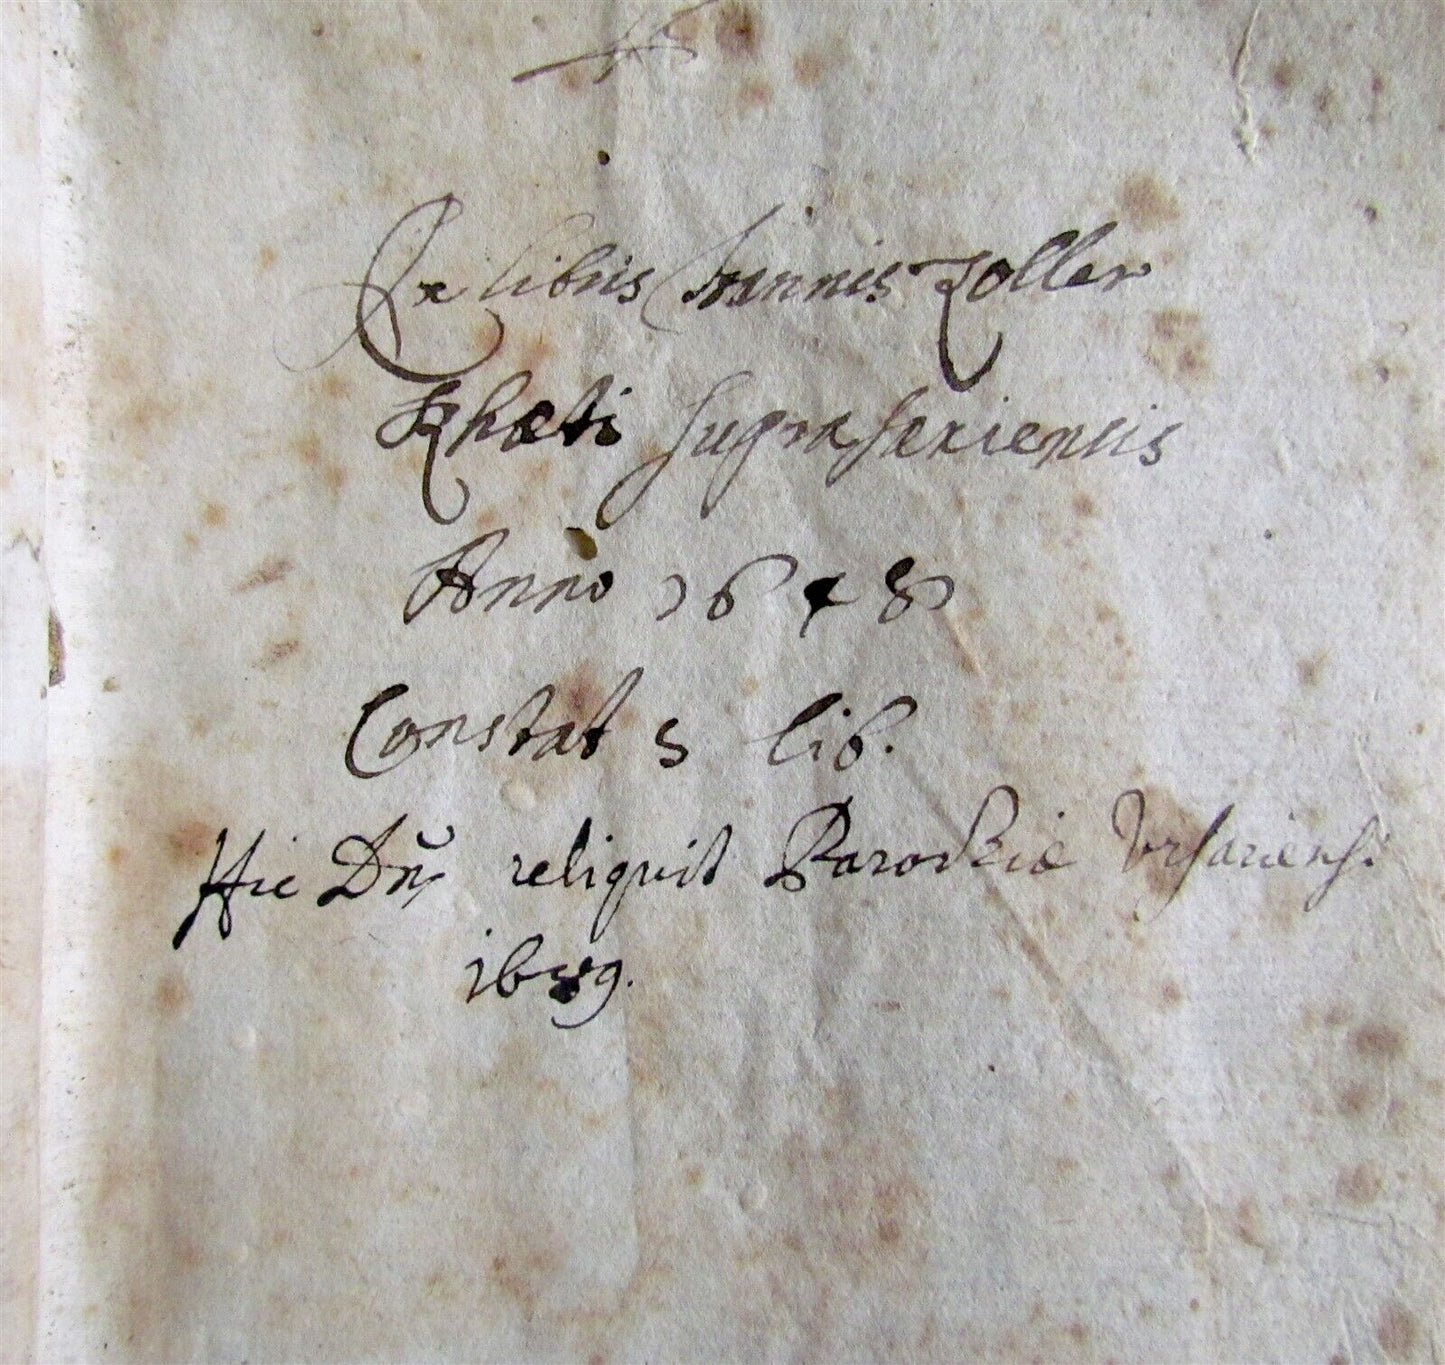 Ex libris Joannis Zoller
Rhæti supra saxiensis
Anno 1648
Constat 5 lib.
Hic Dñs reliquit Parochiæ Ursariensi
1689.